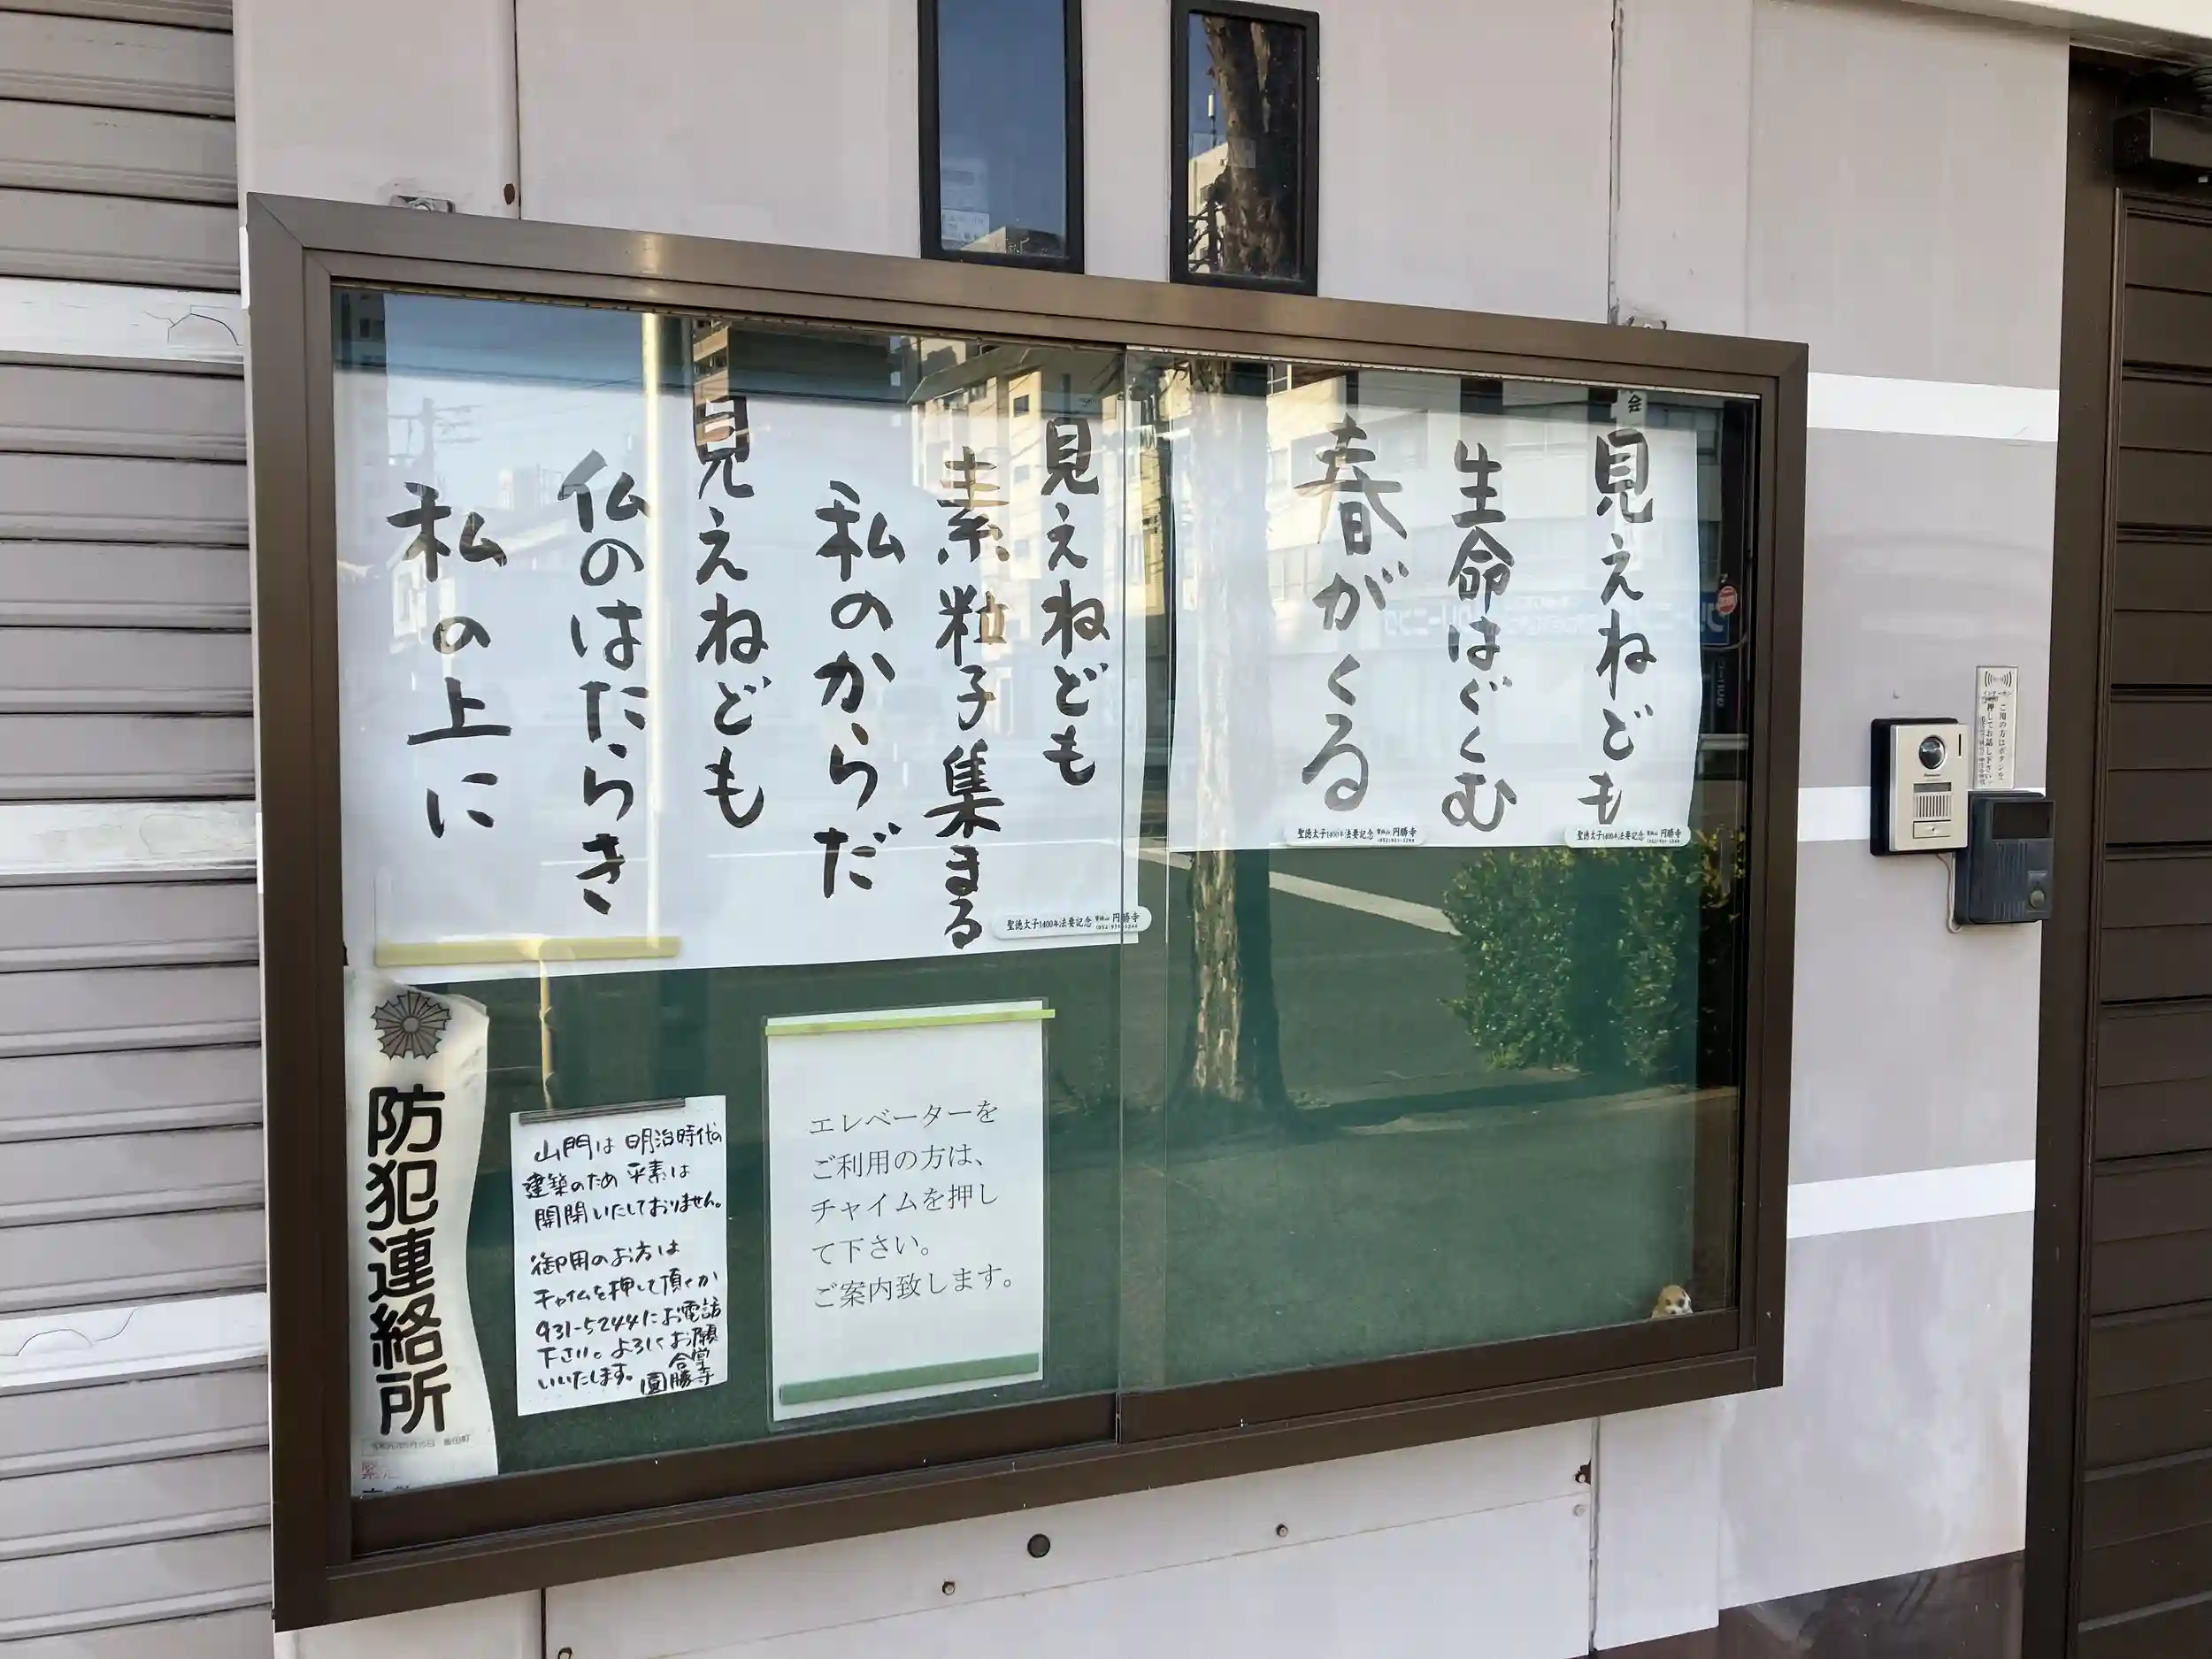 見えねども
生命はぐくむ
春がくる
見えねども
素粒子集まる
私のからだ
見えねども
仏のはたらき
私の上に
聖徳太子1400年法要記念 円勝寺
聖徳太子1400年法要記念 円勝寺
聖徳太子1400年法要記念 円勝寺
防犯連絡所
山門は明治時代の
建築のため平素は
開閉いたしておりません。
御用のお方は
チャイムを押して頂くか
931-5244にお電話
下さい。よろしくお願
いいたします。
圓勝寺
エレベーターを
ご利用の方は、
チャイムを押し
て下さい。
ご案内致します。
ご用の方はボタンを
押してお話し下さい。
Panasonic